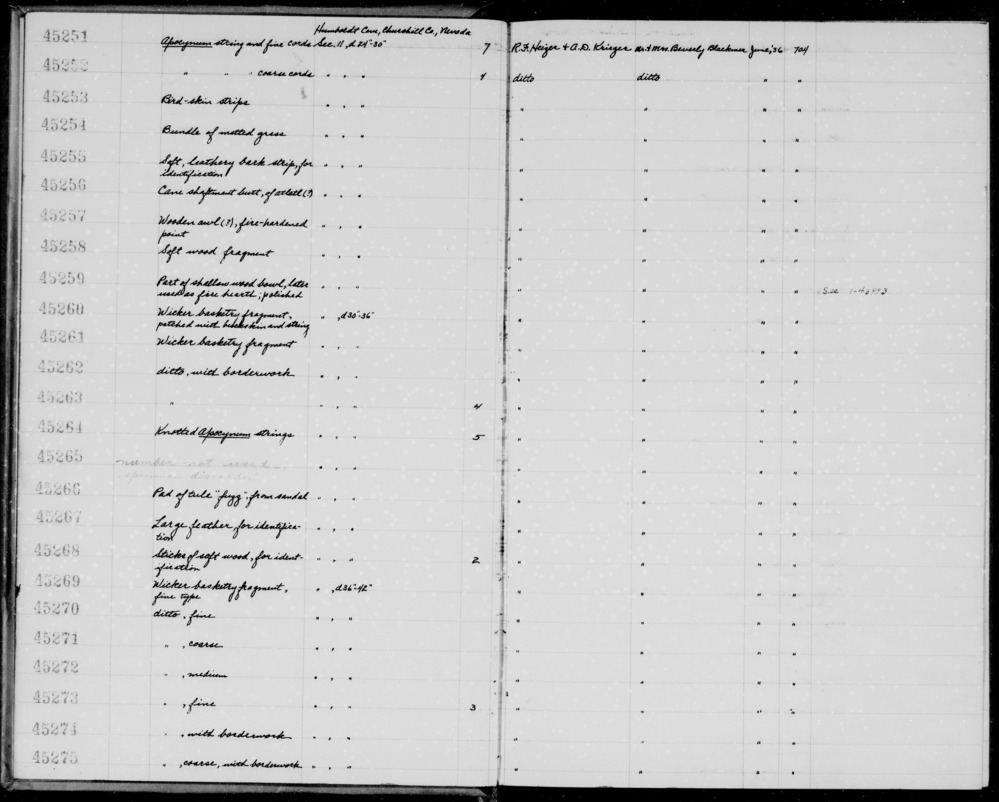 45251 Humboldt Cave, Churchill Co, Nevada
Apocynum string and fine cords Sec. 11, d 24"-30" 7 R.F. Heizer & A.D. Krieger Mr + Mrs. Beverly Blackmer June, '36 704
45252 " " " coarse cords " " " 4 ditto ditto " "
45253 Bird-skin strips " " " " " " "
45254 Bundle of matted grass " " " " " " "
45255 Soft, leathery bark strip, for " " " " " " "
identification
45256 Cane shaftment butt, of atlatl (?) " " " " " " "
45257 Wooden awl (?), fire-hardened " " " " " " "
point
45258 Soft wood fragment " " " " " " "
45259 Part of shallow wood bowl, later " " " " " " " See
used as fire hearth; polished
45260 Wicker basketry fragment, " , d 30"-36" " " " "
patched with buckskin and string
45261 Wicker basketry fragment " " " " " " "
45262 ditto, with borderwork " " " " " " "
45263 " " " " 4 " " " "
45264 Knotted Apocynum strings " " " 5 " " " "
45265 number not used - " " " " " " "
45266 Pad of tule "fuzz" from sandal " " " " " " "
45267 Large feather, for identifica- " " " " " " "
tion
45268 Sticks of soft wood, for ident- " " " 2 " " " "
ification
45269 Wicker basketry fragment, " , d 36"-42" " " " "
fine type
45270 ditto, fine " " " " " " "
45271 " , coarse " " " " " " "
45272 " , medium " " " " " " "
45273 " , fine " " " 3 " " " "
45274 " , with borderwork " " " " " " "
45275 " , coarse, with borderwork " " " " " " "